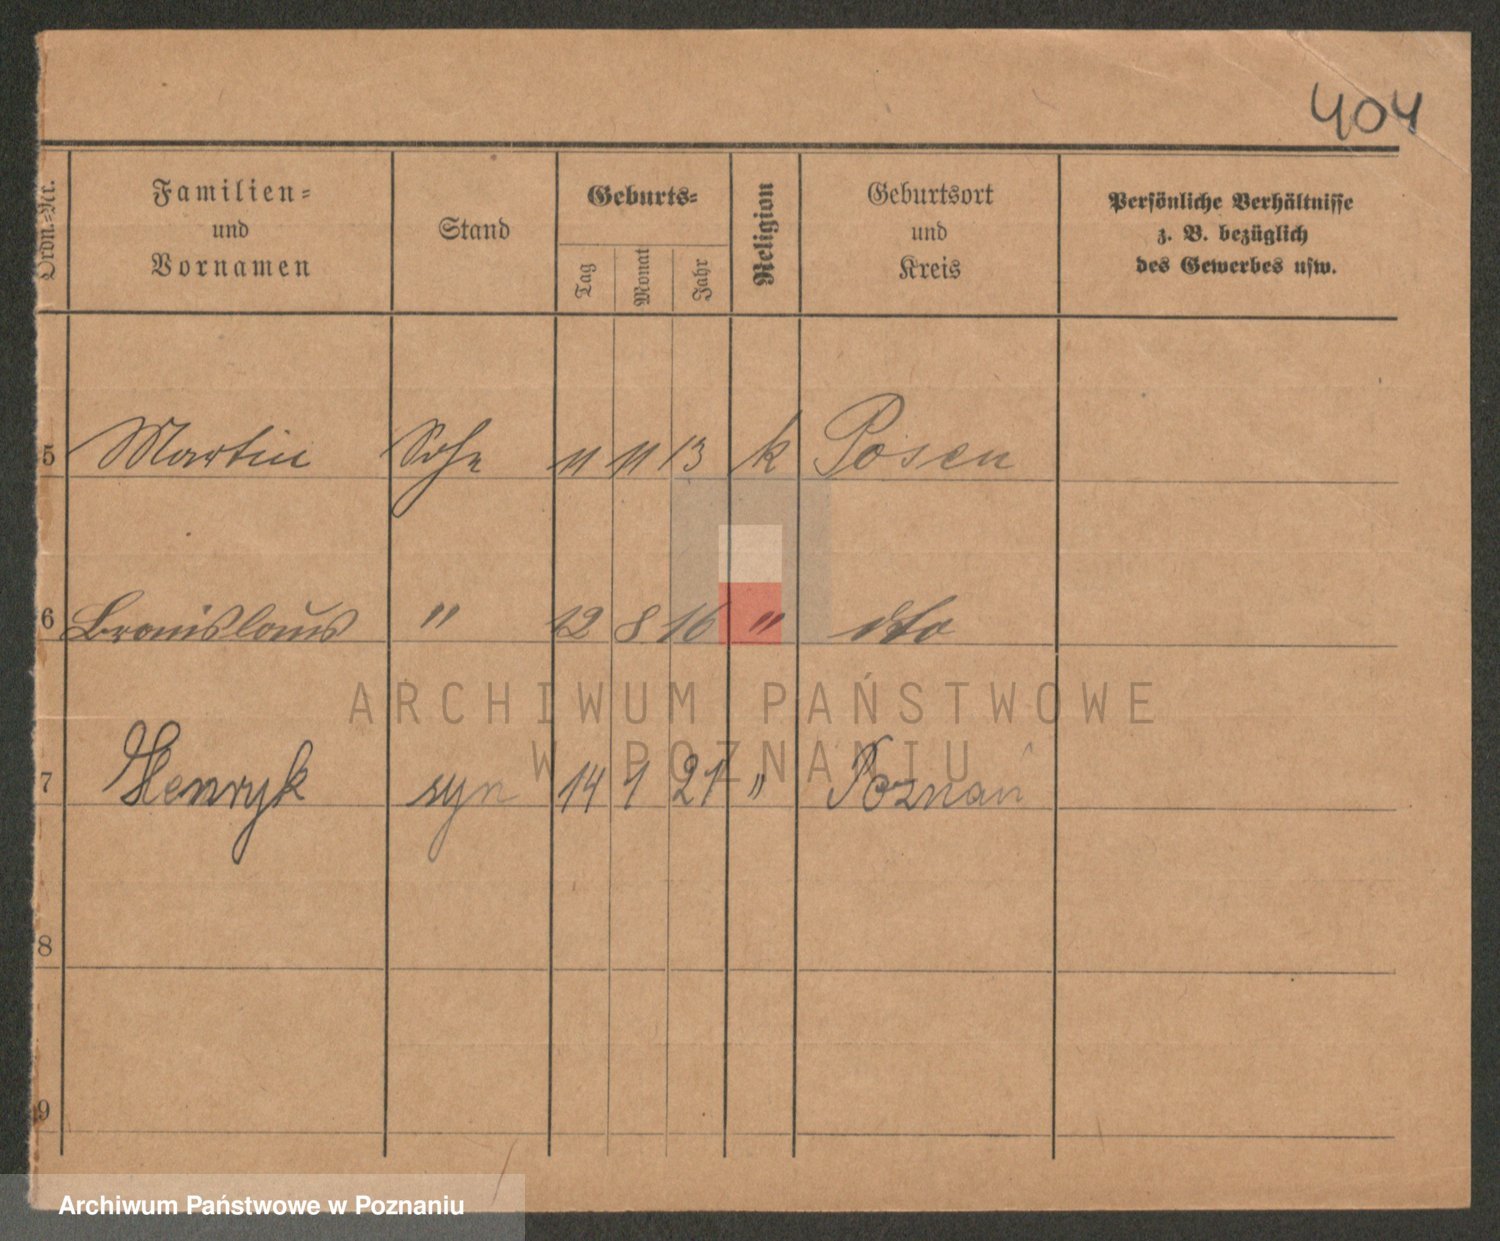 404
Ordn.=Nr.
Familien=
und
Vornamen
Stand
Geburts=
Tag
Monat
Jahr
Religion
Geburtsort
und
Kreis
Persönliche Verhältnisse
z. B. bezüglich
des Gewerbes usw.
5 Martin Sohn 11 11 13 k Posen
6 Bronislaus " 12 8 16 " dto
7 Henryk syn 14 1 21 " Poznań
8
9
ARCHIWUM PAŃSTWOWE
W POZNANIU
Archiwum Państwowe w Poznaniu